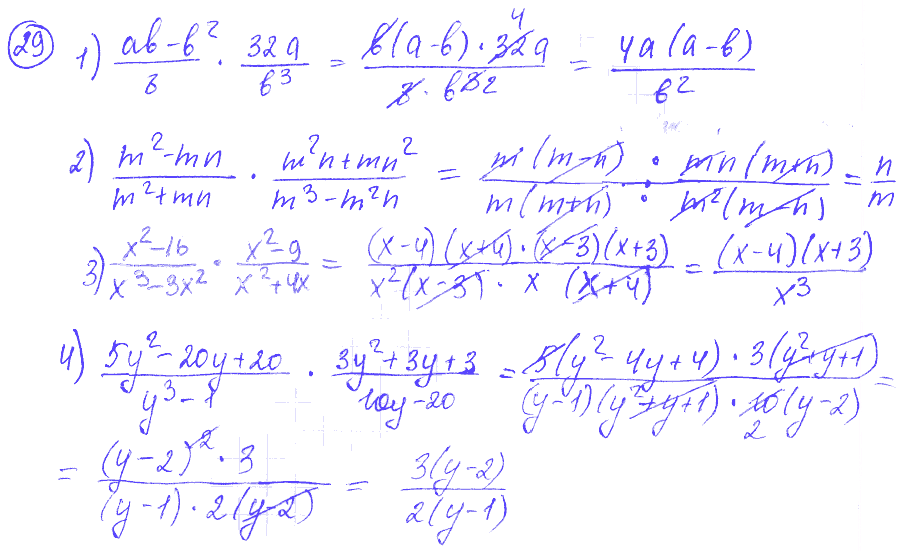 29 1) (ab - b²)/8 · 32a/b³ = (b(a-b) · 32a)/(8 · b³ 2) 4 = 4a(a-b)/b²
2) (m² - mn)/(m² + mn) · (m²n + mn²)/(m³ - m²n) = (m(m-n) · mn(m+n))/(m(m+n) · m²(m-n)) = n/m
3) (x² - 16)/(x³ - 3x²) · (x² - 9)/(x² + 4x) = ((x-4)(x+4) · (x-3)(x+3))/(x²(x-3) · x (x+4)) = (x-4)(x+3)/x³
4) (5y² - 20y + 20)/(y³ - 1) · (3y² + 3y + 3)/(10y - 20) = (5(y² - 4y + 4) · 3(y² + y + 1))/((y-1)(y² + y + 1) · 10(y-2)) 2 =
= ((y-2)² · 3)/((y-1) · 2(y-2)) = 3(y-2)/2(y-1)